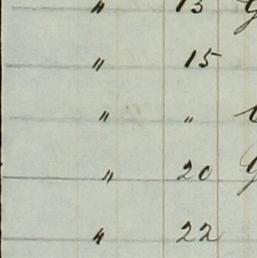 " 13
" 15
" "
" 20
" 22